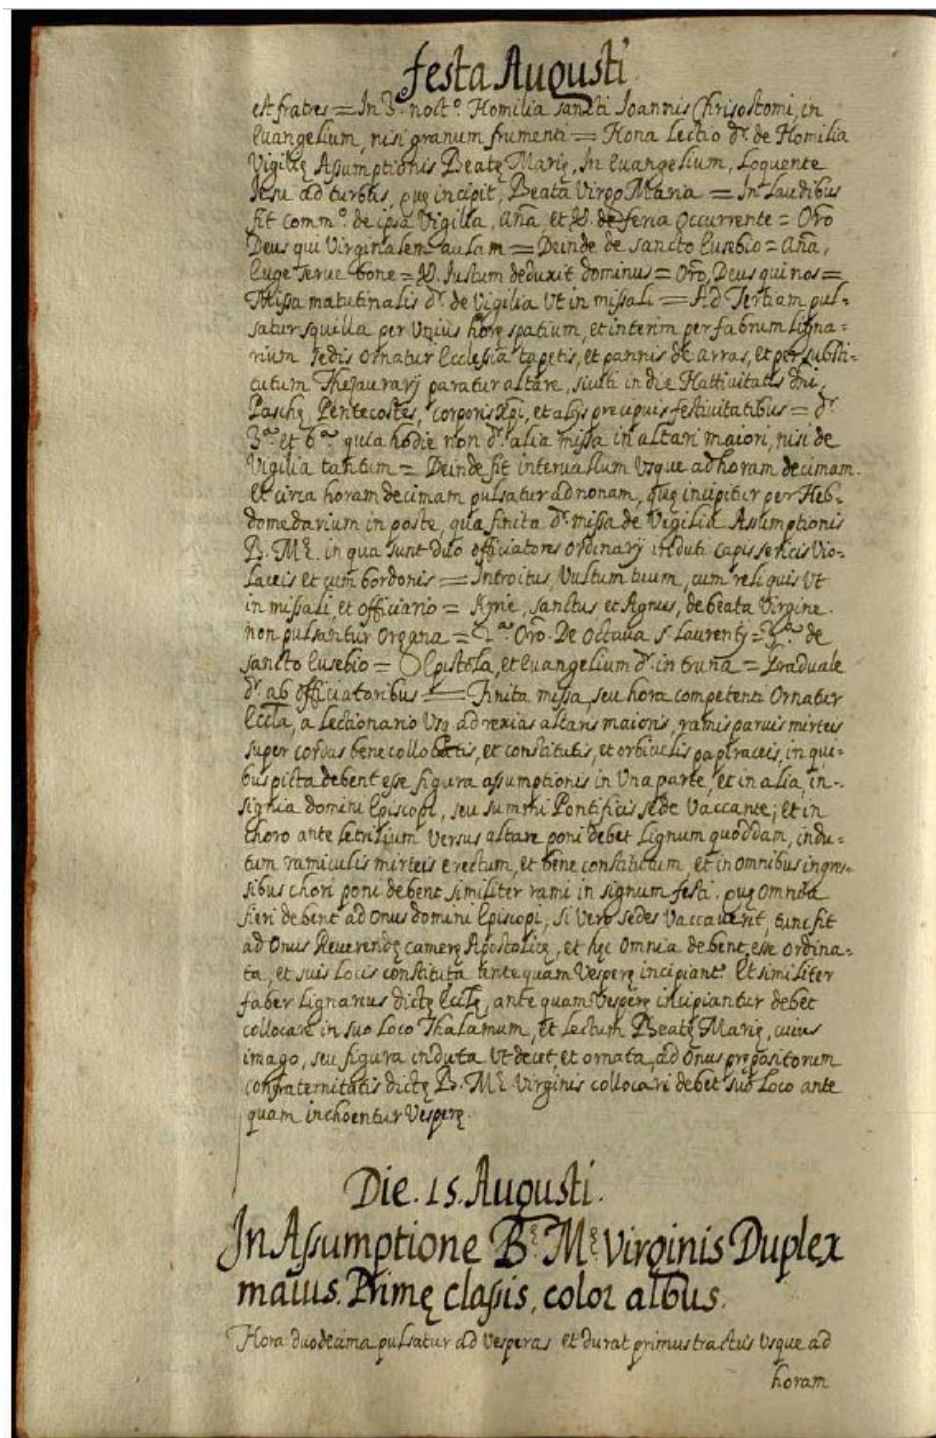 festa Augusti
est fratres = In 3.º noct.º Homilia sancti Ioannis Chrisostomi, in
Euangelium, nisi granum frumenti = Nona Lectio d.r de Homilia
Vigilię Assumptionis Beatę Marię, In Euangelium, Loquente
Iesu ad turbas, quę incipit, Beata Virgo Maria = In Laudibus
fit Comm.º de ipsa Vigilia, aña et ℣. de feria Occurrente = Orõ
Deus qui Virginalem aulam = Deinde de sancto Eusebio = aña,
Euge serue bone = ℣. Iustum deduxit dominus = Orõ, Deus qui nos =
Missa matutinalis d.r de Vigilia Vt in missali = Ad Tertiam pul=
satur squilla per Vnius horę spatium, et interim per fabrum Ligna=
rium sedis Ornatur Ecclesia tapetis, et pannis de arras, et per substi=
tutum Thesaurarÿ paratur altare, sicuti in die Nattiuitatis dñi,
Paschę, Pentecostes, Corporis Xp̃i, et alÿs precipuis festiuitatibus = d.r
3.ª et 6.ª quia hodie non d.r alia missa in altari maiori, nisi de
Vigilia tantum = Deinde fit interuallum Vsque ad horam decimam.
Et circa horam decimam pulsatur ad nonam, quę incipitur per Heb=
domedarium in poste, qua finita d.r missa de Vigilia Assumptionis
B. M.ę in qua sunt duo officiatores Ordinarÿ induti capis sericis Vio=
laceis et cum bordonis = Introitus, Vultum tuum, cum reliquis Vt
in missali, et officiario = Kyrie, sanctus et Agnus, de beata Virgine.
non pulsantur Organa = 2.ª Orõ. De Octaua S. Laurentÿ = 3.ª de
sancto Eusebio = Epistola, et Euangelium d.r in truna = Graduale
d.r ab officiatoribus = Finita missa, seu hora competenti Ornatur
Eccla, a Lectionario Vsq. ad rexias altaris maioris, ramis paruis mirteis
super cordas bene collocatis, et constitutis, et orbiculis papiraceis, in qui=
bus picta debent esse figura assumptionis in Vna parte, et in alia, in=
signia domini Episcopi, seu summi Pontificis sede Vaccante; Et in
choro ante Letrilium Versus altare poni debet Lignum quoddam, indu=
tum ramiculis mirteis erectum, et bene constitutum, et in omnibus ingres=
sibus chori poni debent similiter rami in signum festi. quę Omnia
fieri debent ad Onus domini Episcopi, si Vero sedes Vaccauerit, tunc fit
ad Onus Reuerendę camerę Apostolicę, et hęc Omnia debent esse Ordina=
ta, et suis Locis constituta antequam Vesperę incipiant. Et similiter
faber Lignarius dictę Ecclę, ante quam Vesperę incipiantur debet
collocare in suo Loco Thalamum, et Lectum Beatę Marię, cuius
imago, seu figura induta Vt decet, et ornata, ad Onus prepositorum
confraternitatis dictę B. M.ę Virginis collocari debet suo Loco ante
quam inchoentur Vesperę.
Die. 15. Augusti.
In Assumptione B.ę M.ę Virginis Duplex
maius. Primę classis, color albus.
Hora duodecima pulsatur ad Vesperas et durat primus tractus Vsque ad
horam